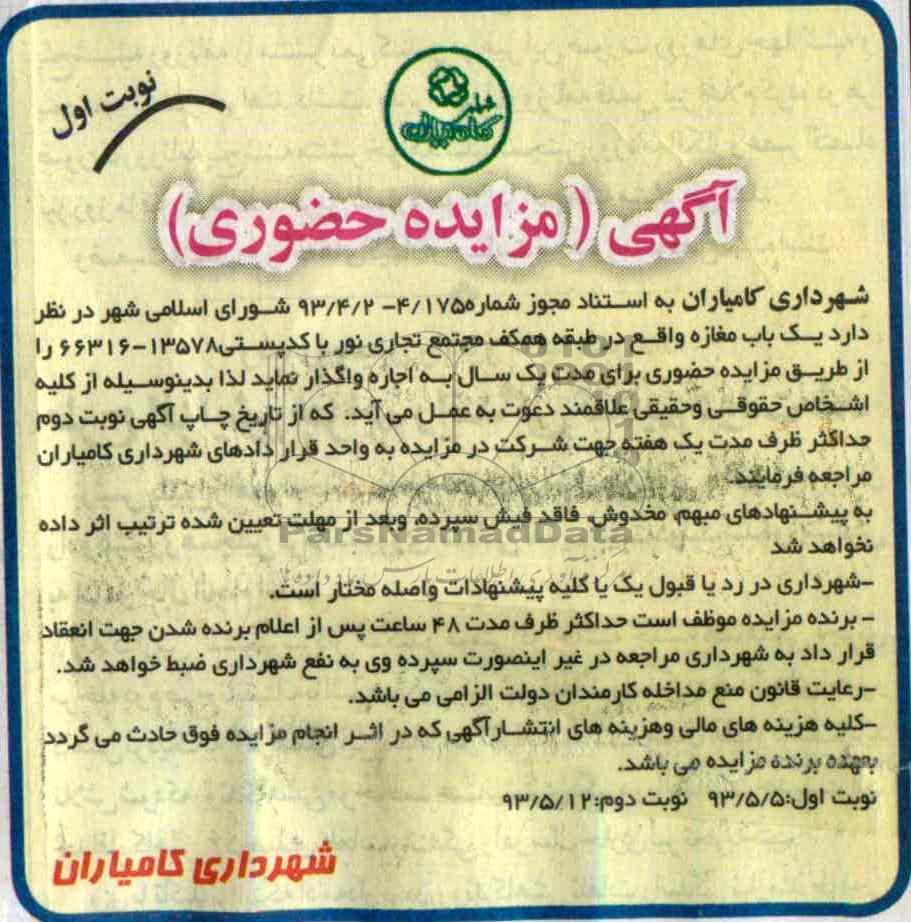 نوبت اول
شهر
کامیاران
آگهی ( مزایده حضوری)
شهرداری کامیاران به استناد مجوز شماره۴/۱۷۵- ۹۳/۴/۲ شورای اسلامی شهر در نظر
دارد یک باب مغازه واقع در طبقه همکف مجتمع تجاری نور با کدپستی۱۳۵۷۸-۶۶۳۱۶ را
از طریق مزایده حضوری برای مدت یک سال به اجاره واگذار نماید لذا بدینوسیله از کلیه
اشخاص حقوقی وحقیقی علاقمند دعوت به عمل می آید. که از تاریخ چاپ آگهی نوبت دوم
حداکثر ظرف مدت یک هفته جهت شرکت در مزایده به واحد قرار دادهای شهرداری کامیاران
مراجعه فرمایند.
به پیشنهادهای مبهم، مخدوش، فاقد فیش سپرده، وبعد از مهلت تعیین شده ترتیب اثر داده
ParsNamadData
نخواهد شد
مرکز فرآوری اطلاعات پارس نماد داده ها
-شهرداری در رد یا قبول یک یا کلیه پیشنهادات واصله مختار است.
- برنده مزایده موظف است حداکثر ظرف مدت ۴۸ ساعت پس از اعلام برنده شدن جهت انعقاد
قرار داد به شهرداری مراجعه در غیر اینصورت سپرده وی به نفع شهرداری ضبط خواهد شد.
-رعایت قانون منع مداخله کارمندان دولت الزامی می باشد.
-کلیه هزینه های مالی وهزینه های انتشارآگهی که در اثر انجام مزایده فوق حادث می گردد
بعهده برنده مزایده می باشد.
نوبت اول:۹۳/۵/۵ نوبت دوم:۹۳/۵/۱۲
شهرداری کامیاران